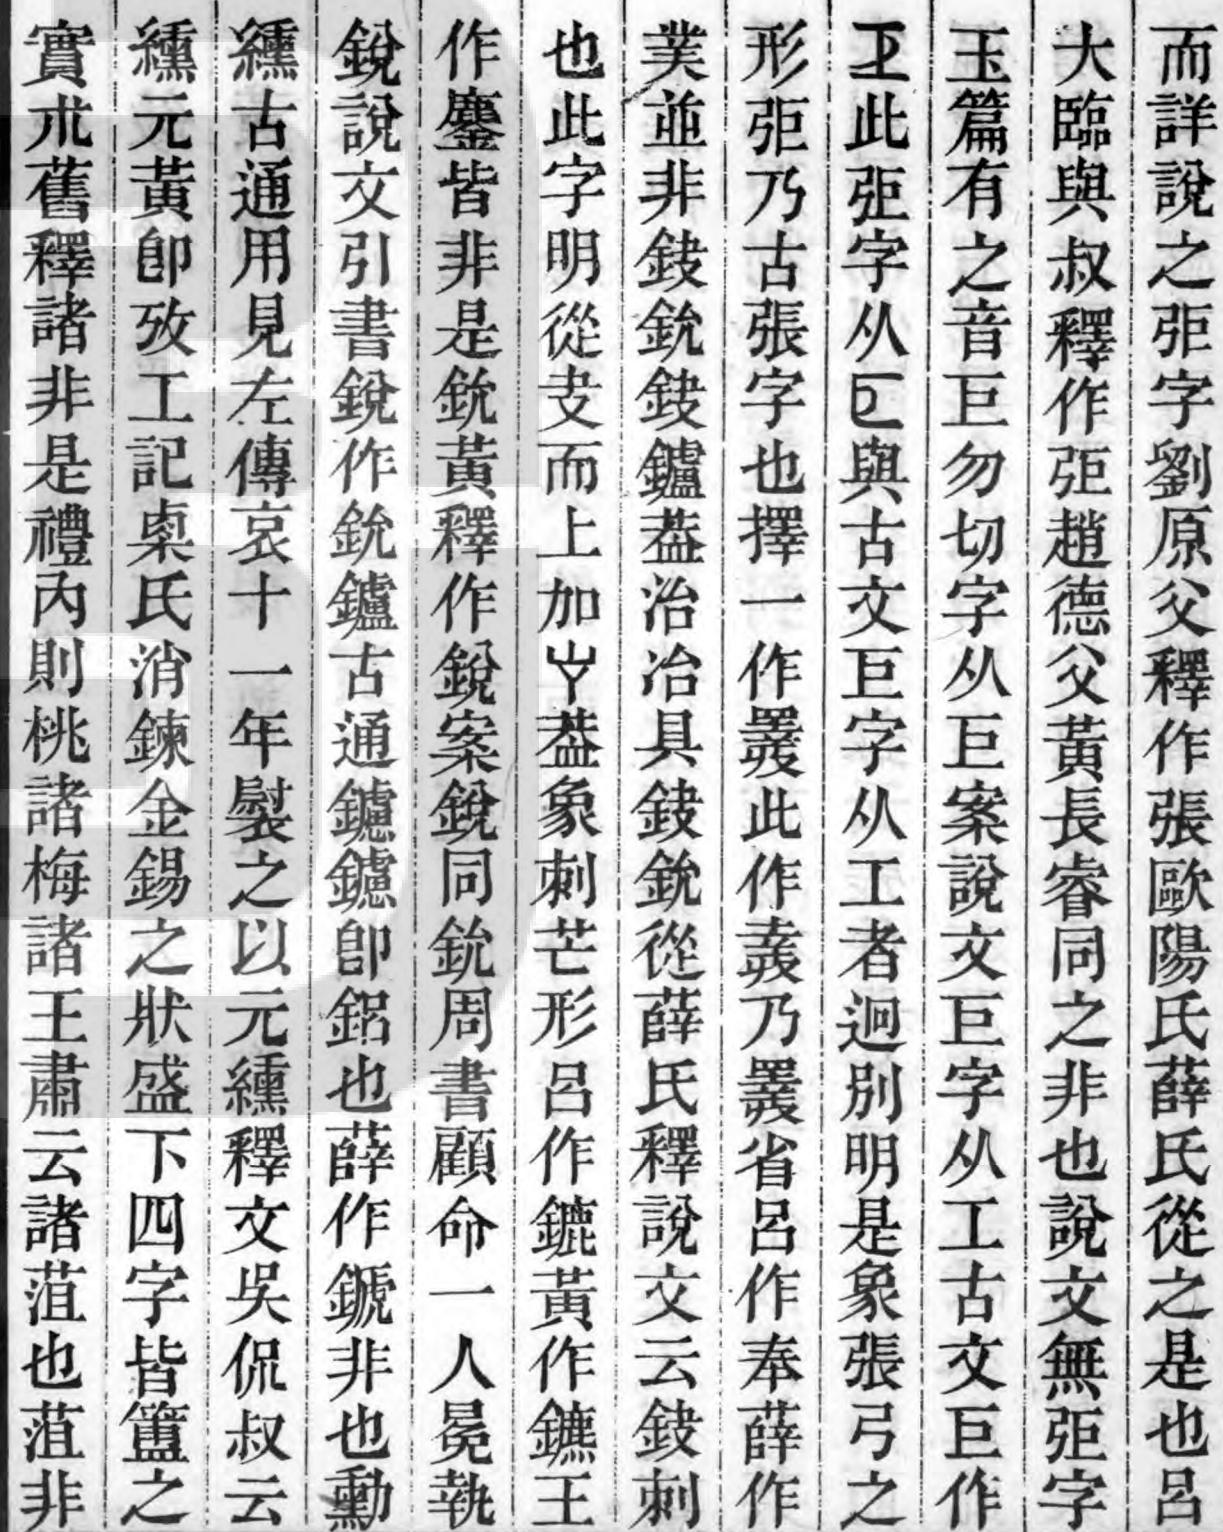 而詳說之弡字劉原父釋作張歐陽氏薛氏從之是也呂
大臨與叔釋作弡趙德父黃長睿同之非也說文無弡字
玉篇有之音巨勿切字从巨案說文巨字从工古文巨作
此弡字从與古文巨字从工者迥別明是象張弓之
形弡乃古張字也擇一作睪此作乃睪省呂作奉薛作
菐並非鈘鈗鈘鑪葢治冶具鈘鈗從薛氏釋說文云鈘刺
也此字明從支而上加葢象刺芒形呂作鑣黃作鑣王
作鏖皆非是鈗黃釋作銳案銳同鈗周書顧命一人冕執
銳說文引書銳作鈗鑪古通鑢鑢卽鋁也薛作鏕非也勳
纁古通用見左傳哀十一年褽之以元纁釋文吳侃叔云
纁元黃卽攷工記㮚氏消鍊金錫之狀盛下四字皆簠之
實朮舊釋諸非是禮內則桃諸梅諸王肅云諸菹也菹非